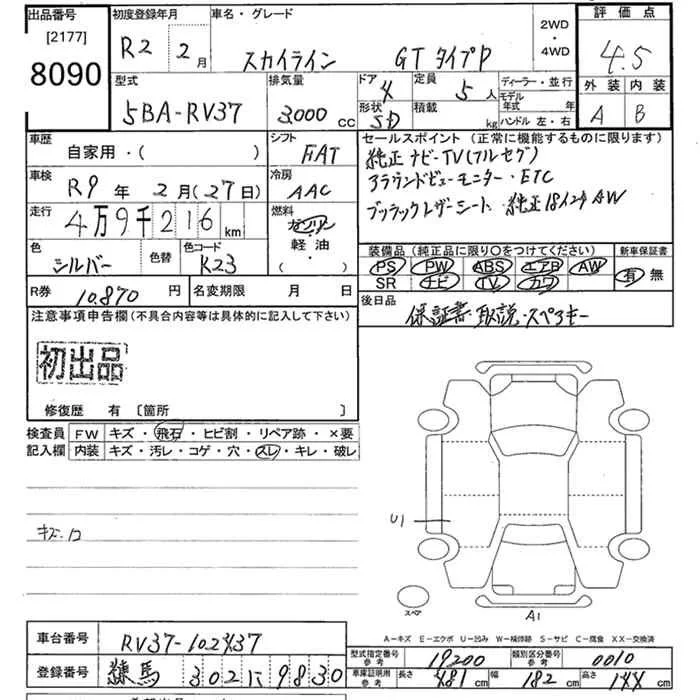 出品番号 [2177] 8090
初度登録年月 R2年 2月
車名・グレード スカイライン GT タイプP
2WD・4WD
評価点 4.5
外装 A 内装 B
型式 5BA-RV37
排気量 3,000 cc
ドア 4 形状 SD
定員 5人 積載 kg
ディーラー・並行
モデル年式 年
ハンドル 左・右
車歴 自家用・( )
シフト FAT
車検 R9年 2月(27日)
冷房 AAC
走行 4万9千216km
燃料 ガソリン 軽油・( )
色 シルバー 色替
色コード K23
R券 10,870円
名変期限 月 日
セールスポイント(正常に機能するものに限ります)
純正ナビ・TV(フルセグ)
アラウンドビューモニター・ETC
ブラックレザーシート 純正18インチAW
装備品(純正品に限り〇をつけてください)
PS PW ABS エアB AW
SR ナビ TV カワ
新車保証書 有 無
後日品
保証書・取説・スペアキー
注意事項申告欄(不具合内容等は具体的に記入して下さい)
初出品
修復歴 有 [箇所 ]
検査員記入欄
FW キズ・飛石・ヒビ割・リペア跡・×要
内装 キズ・汚レ・コゲ・穴・スレ・キレ・破レ
U1
スペア
A1
A-キズ E-エクボ U-凹み W-補修跡 S-サビ C-腐食 XX-交換済
車台番号 RV37-102437
登録番号 練馬 302 に 9830
型式指定番号 参考 19200
類別区分番号 参考 0010
車庫証明用 参考 長さ 481cm 幅 182cm 高さ 144cm